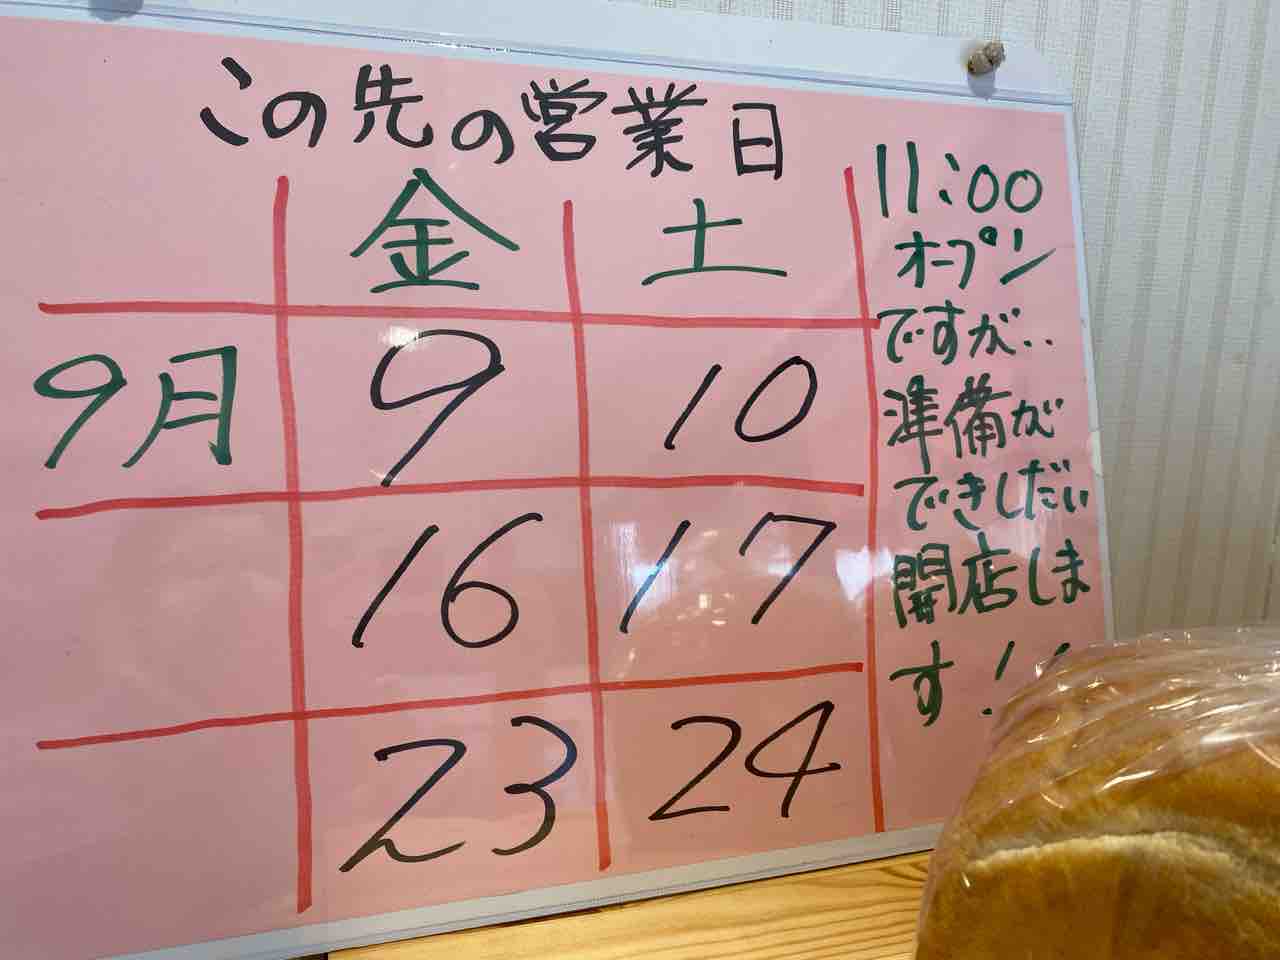 この先の営業日
金 土
9月 9 10
16 17
23 24
11:00
オープン
ですが..
準備が
できしだい
開店しま
す!!